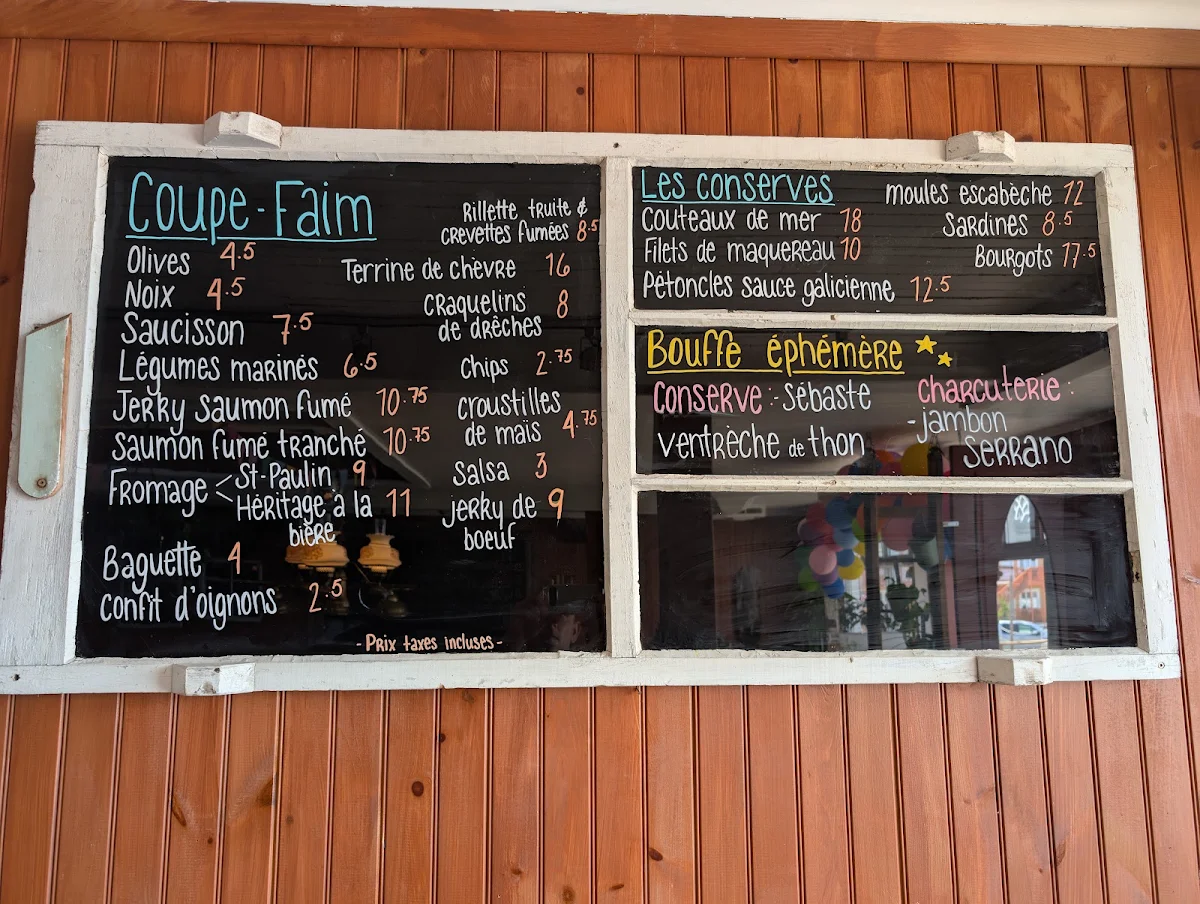 Coupe-Faim
Olives 4.5
Noix 4.5
Saucisson 7.5
Légumes marinés 6.5
Jerky saumon fumé 10.75
Saumon fumé tranché 10.75
Fromage < St-Paulin 9
< Héritage à la 11
bière
Baguette 4
confit d'oignons 2.5
Rillette truite &
crevettes fumées 8.5
Terrine de chèvre 16
Craquelins 8
de drêches
Chips 2.75
croustilles
de maïs 4.75
Salsa 3
jerky de 9
boeuf
- Prix taxes incluses -
Les conserves
Couteaux de mer 18
Filets de maquereau 10
Pétoncles sauce galicienne 12.5
moules escabèche 12
Sardines 8.5
Bourgots 17.5
Bouffe éphémère
Conserve : - Sébaste
ventrèche de thon
charcuterie :
- jambon
serrano